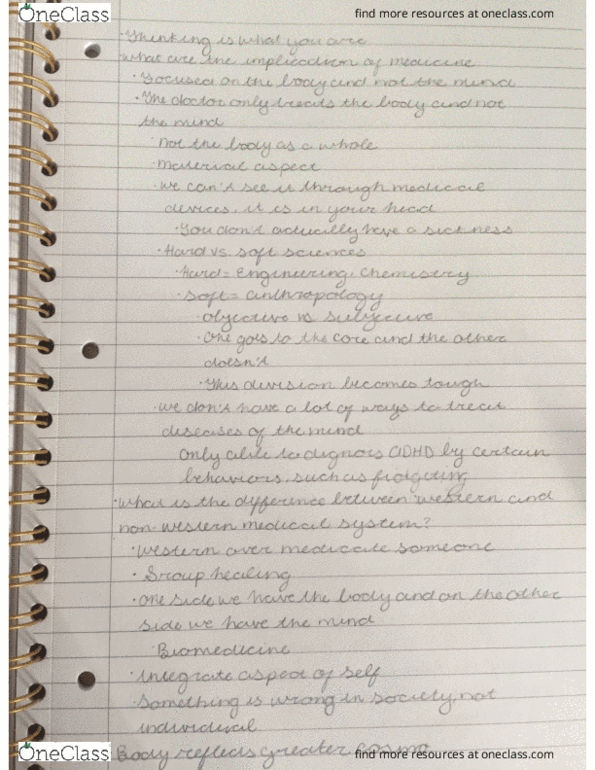 OneClass
find more resources at oneclass.com
·Thinking is what you are
·what are the implication of medicine
·Focused on the body and not the mind
·The doctor only treats the body and not
the mind
·not the body as a whole
·material aspect
·we can't see it through medical
devices, it is in your head
·You don't actually have a sickness
·Hard vs. soft sciences
·Hard = Engineering, Chemistry
·soft = anthropology
·objective vs subjective
·one goes to the core and the other
doesn't
·This division becomes tough
·we don't have a lot of ways to treat
diseases of the mind
only able to diagnos ADHD by certain
behaviors, such as fidgeting
·what is the difference between western and
non-western medical system?
·western over medicate someone
·Group healing
·one side we have the body and on the other
side we have the mind
·Biomedicine
·Integrate aspect of self
·something is wrong in society, not
individual
Body reflects greater
OneClass
find more resources at oneclass.com